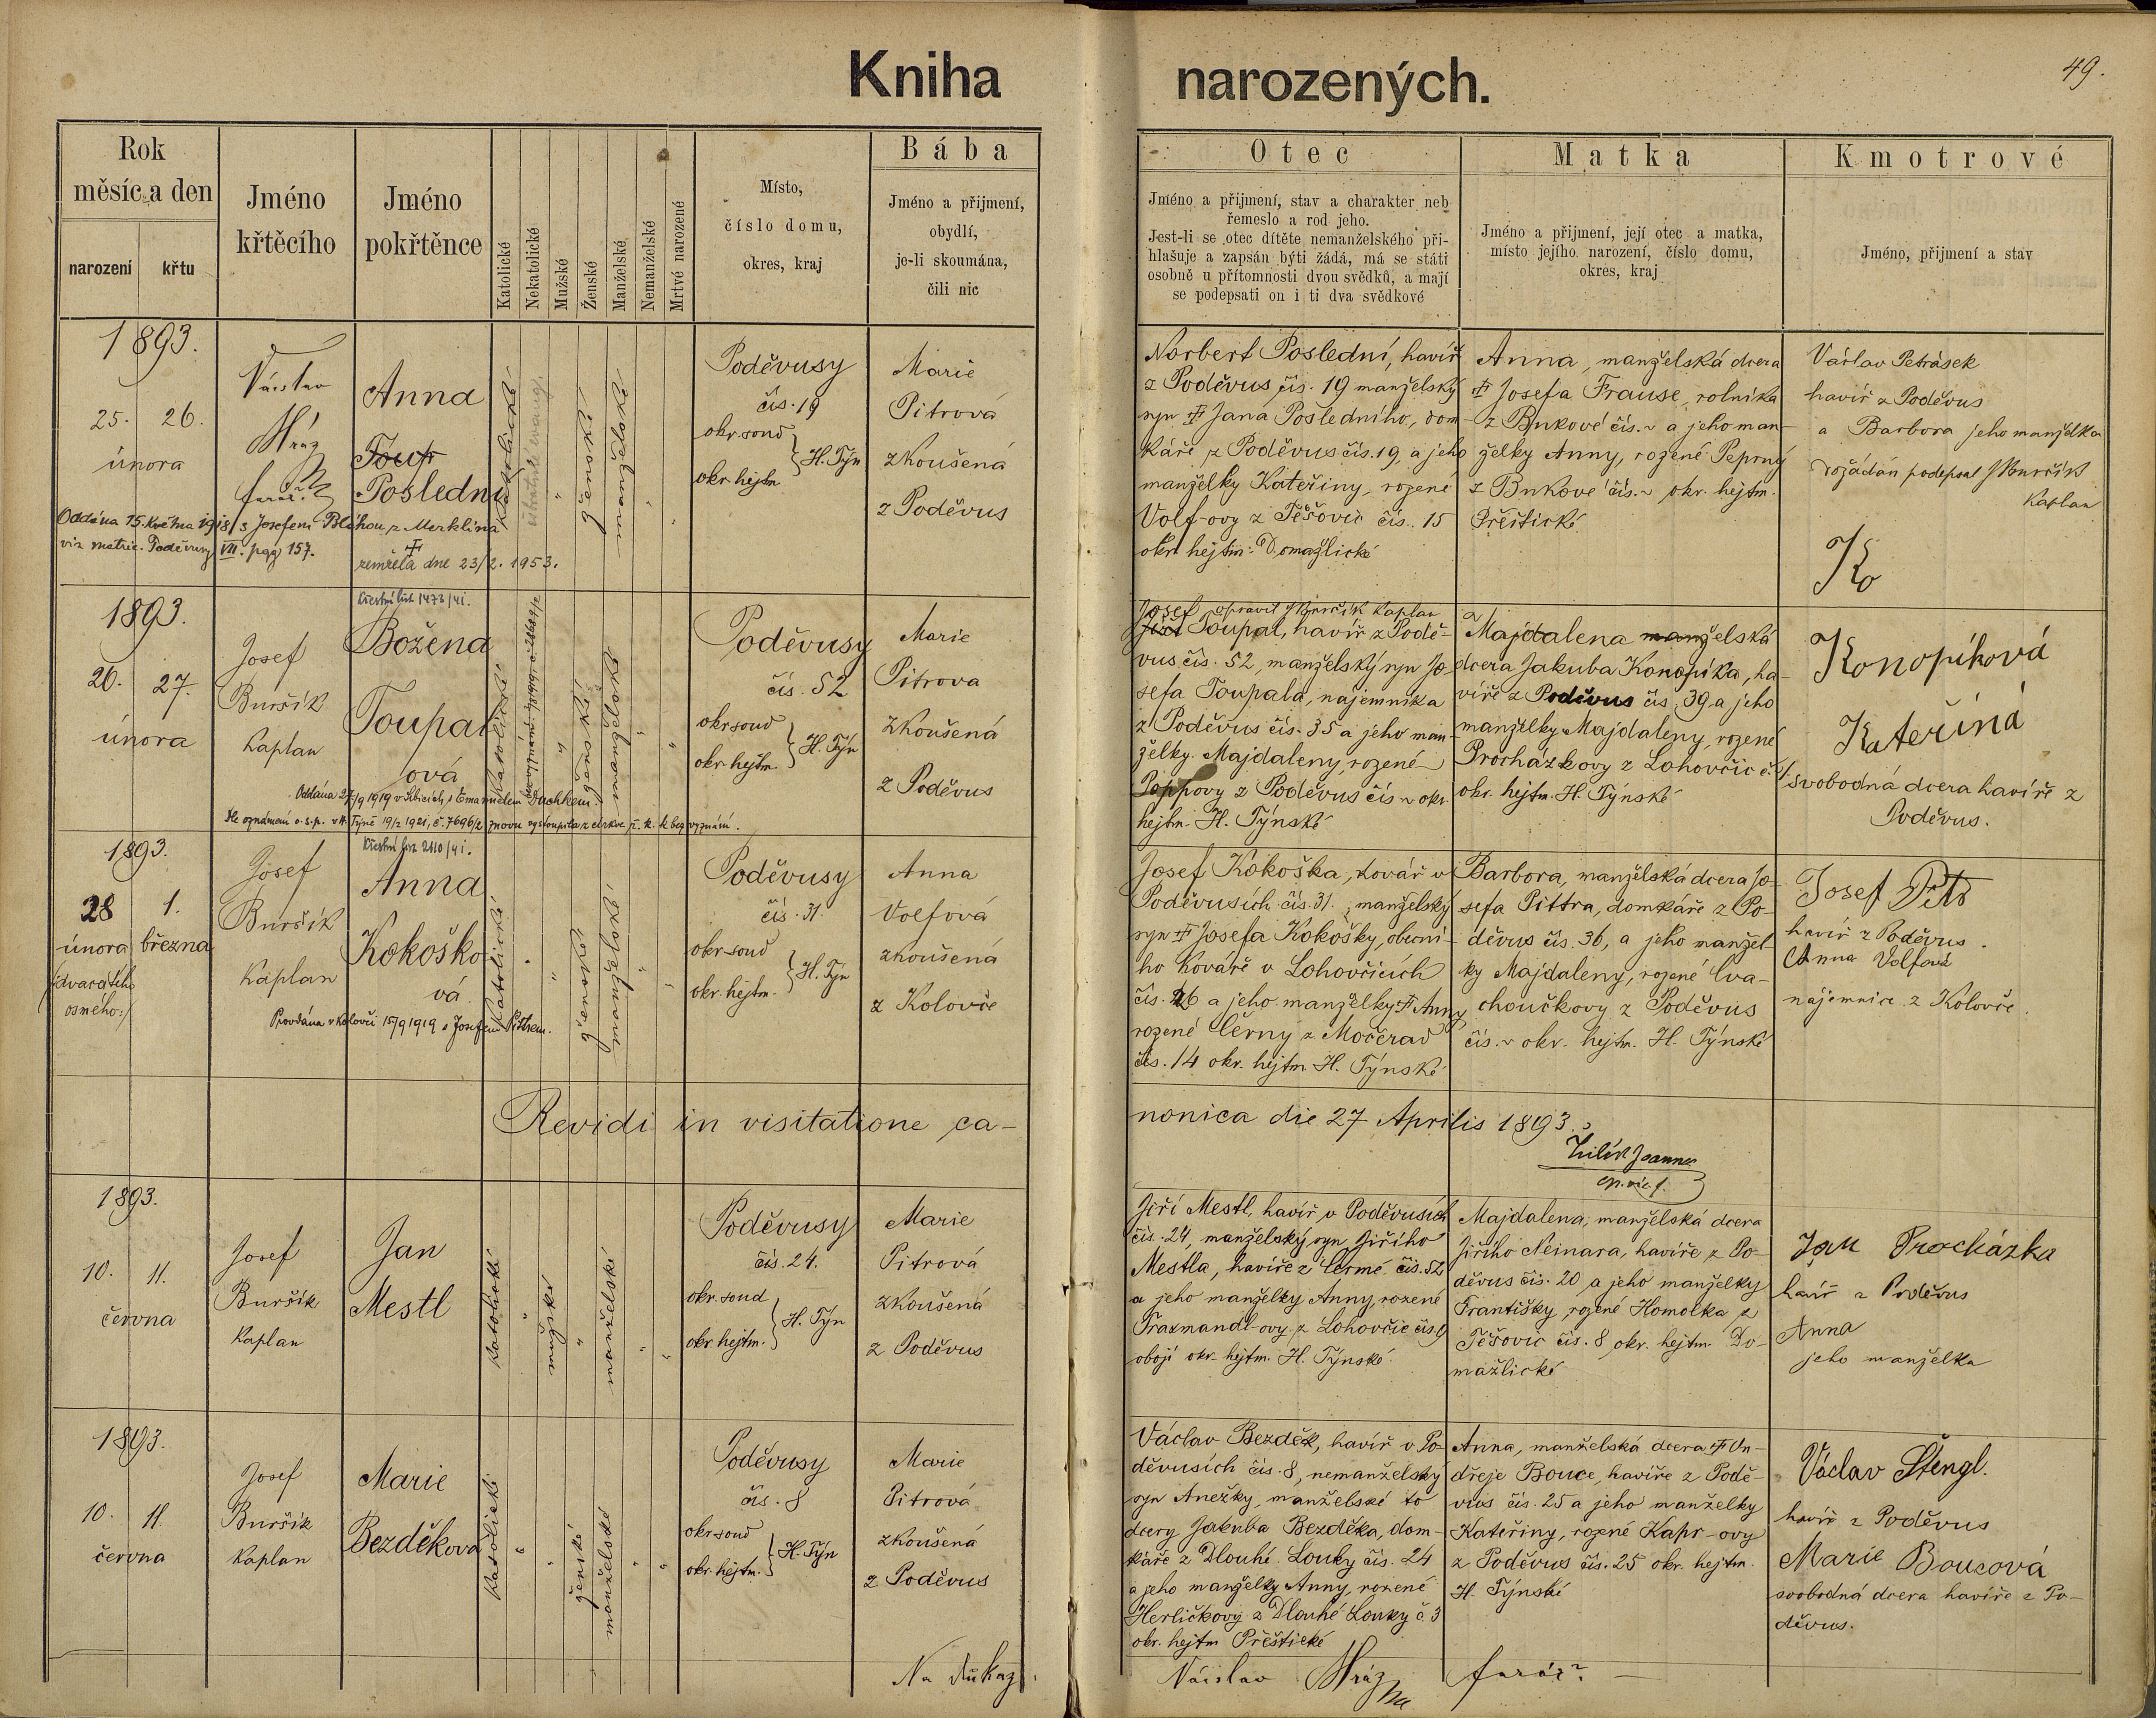 Kniha narozených.
49.
Rok
měsíc a den
narození
křtu
Jméno
křtěcího
Jméno
pokřtěnce
Katolické
Nekatolické
Mužské
Ženské
Manželské
Nemanželské
Mrtvé narozené
Místo,
číslo domu,
okres, kraj
Bába
Jméno a přijmení,
obydlí,
je-li skoumána,
čili nic
Otec
Jméno a přijmení, stav a charakter neb
řemeslo a rod jeho.
Jest-li se otec dítěte nemanželského při-
hlašuje a zapsán býti žádá, má se státi
osobně u přítomnosti dvou svědků, a mají
se podepsati on i ti dva svědkové
Matka
Jméno a přijmení, její otec a matka,
místo jejího narození, číslo domu,
okres, kraj
Kmotrové
Jméno, přijmení a stav
1893.
25. 26.
února
Václav
Mráz
farář
Anna
Toup
Poslední
Oddána 15. května 1918 s Josefem Bláhou z Merklína
viz matric. Poděvusy VII. pag 157.
zemřela dne 23/2. 1953.
katolické
ženské
manželské
Poděvusy
čís. 19
okr. soud
okr. hejtm.
H. Týn
Marie
Pitrová
zkoušená
z Poděvus
Norbert Poslední, havíř
z Poděvus čís. 19 manželský
syn † Jana Posledního, dom-
káře z Poděvus čís. 19, a jeho
manželky Kateřiny, rozené
Volf-ovy z Těšovic čís. 15
okr. hejtm. Domažlické
Anna, manželská dcera
† Josefa Frause, rolníka
z Bukové čís. ~ a jeho man-
želky Anny, rozené Peprný
z Bukové čís. ~ okr. hejtm.
Přeštické
Václav Petrásek
havíř z Poděvus
a Barbora jeho manželka
dožádán podepsal J Buršík
Kaplan
Ko
1893.
26. 27.
února
Josef
Buršík
Kaplan
Křestní list 1473/41.
Božena
Toupal
ová
Oddána 27/9 1919 v Kbicích s Emanuelem Duchkem.
Dle oznámení o. s. p. v H. Týně 19/2 1921, č. 7696/2 znovu vystoupila z církve ř. k. k bez vyznání.
katolické
ženské
manželské
Poděvusy
čís. 52
okr. soud
okr. hejtm.
H. Týn
Marie
Pitrova
zkoušená
z Poděvus
Josef opravil J Buršík Kaplan
Toupal, havíř z Podě-
vus čís. 52, manželský syn Jo-
sefa Toupala, nájemníka
z Poděvus čís. 35 a jeho man-
želky Majdaleny, rozené
Poppovy z Poděvus čís ~ okr.
hejtm. H. Týnské
Majdalena manželská
dcera Jakuba Konopíka, ha-
víře z Poděvus čís. 39 a jeho
manželky Majdaleny, rozené
Procházkovy z Lohovčic č. 1
okr. hejtm. H. Týnské
Konopíková
Kateřina
svobodná dcera havíře z
Poděvus.
1893.
28 1.
února března
/:dvacátého
osmého:/
Josef
Buršík
Kaplan
Křestní list 2110/41.
Anna
Kokoško-
vá
Provdána v Koloveči 15/9 1919 s Josefem Pittrem.
katolické
ženské
manželské
Poděvusy
čís. 31.
okr. soud
okr. hejtm.
H. Týn
Anna
Volfová
zkoušená
z Kolovče
Josef Kokoška, kovář v
Poděvusích čís. 31. manželský
syn † Josefa Kokošky, obecní-
ho kováře v Lohovčicích
čís. 26 a jeho manželky † Anny
rozené Černy z Močerad
čís. 14 okr. hejtm. H. Týnské
Barbora, manželská dcera Jo-
sefa Pittra, domkáře z Po-
děvus čís. 36, a jeho manžel-
ky Majdaleny, rozené Cva-
choučkovy z Poděvus
čís. ~ okr. hejtm. H. Týnské
Josef Pitr
havíř z Poděvus.
Anna Volfová
nájemnice z Kolovče.
Revidi in visitatione ca-
nonica die 27 Aprilis 1893.
1893.
10. 11.
června
Josef
Buršík
Kaplan
Jan
Mestl
katolické
mužské
manželské
Poděvusy
čís. 24.
okr. soud
okr. hejtm.
H. Týn
Marie
Pitrová
zkoušená
z Poděvus
Jiří Mestl, havíř v Poděvusích
čís. 24, manželský syn Jiřího
Mestla, havíře z Čermé čís. 52
a jeho manželky Anny, rozené
Traxmandl-ovy z Lohovčic čís. 9
obojí okr. hejtm. H. Týnské.
Majdalena, manželská dcera
Jiřího Neinara, havíře z Po-
děvus čís. 20 a jeho manželky
Františky, rozené Homolka z
Těšovic čís. 8 okr. hejtm. Do-
mažlické
Jan Procházka
havíř z Poděvus
Anna
jeho manželka
1893.
10. 11.
června
Josef
Buršík
Kaplan
Marie
Bezděková
katolické
ženské
manželské
Poděvusy
čís. 8
okr. soud
okr. hejtm.
H. Týn
Marie
Pitrová
zkoušená
z Poděvus
Václav Bezděk, havíř v Po-
děvusích čís. 8, nemanželský
syn Anežky, manželské to
dcery Jakuba Bezděka, dom-
káře z Dlouhé Louky čís. 24
a jeho manželky Anny, rozené
Herličkovy z Dlouhé Louky č. 3
okr. hejtm Přeštické
Anna, manželská dcera † On-
dřeje Bouce, havíře z Podě-
vus čís. 25 a jeho manželky
Kateřiny, rozené Kapr-ovy
z Poděvus čís. 25 okr. hejtm.
H. Týnské
Václav Štengl.
havíř z Poděvus
Marie Boucová
svobodná dcera havíře z Po-
děvus.
Na důkaz
Václav Mráz farář